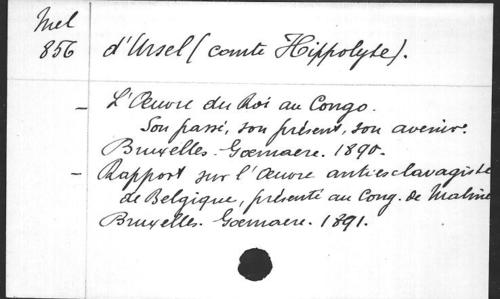 Mel
856
d'Ursel (comte Hippolyte).
— L'Œuvre du Roi au Congo.
Son passé, son présent, son avenir.
Bruxelles. Gœmaere. 1890.
— Rapport sur l'Œuvre antiesclavagiste
de Belgique, présenté au Cong. de Maline
Bruxelles. Gœmaere. 1891.